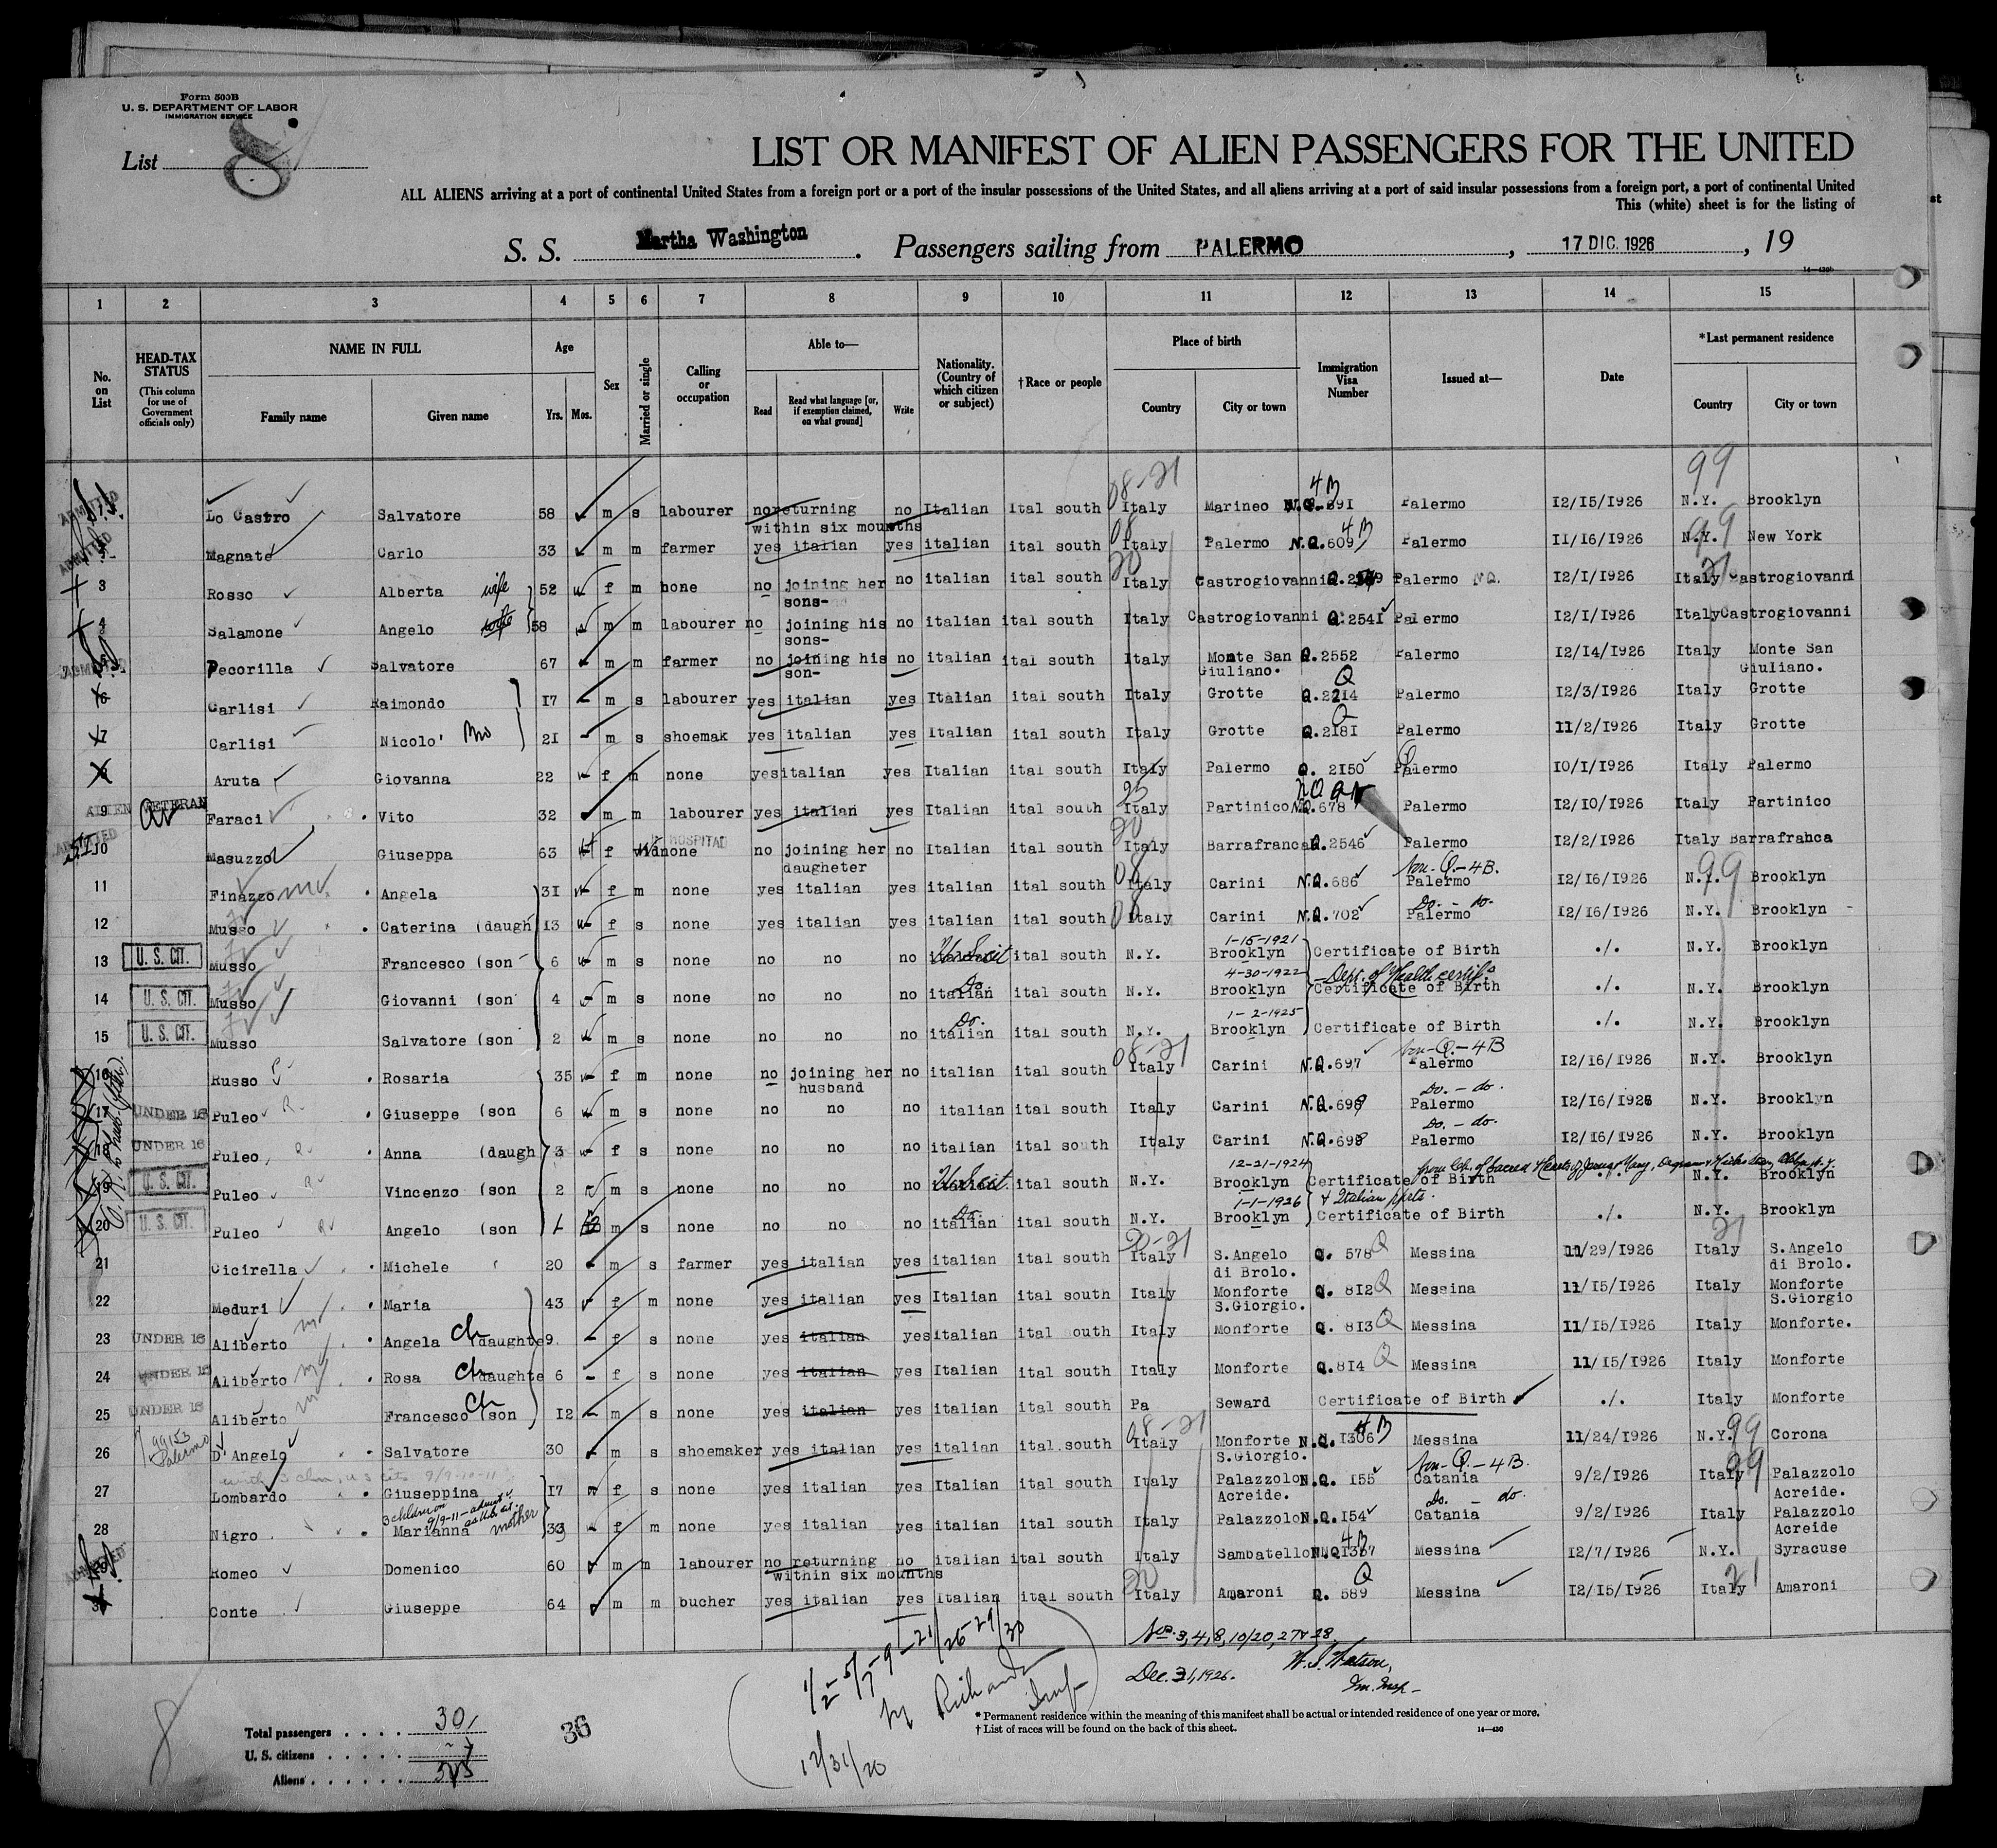 Form 500B
U. S. DEPARTMENT OF LABOR
IMMIGRATION SERVICE
List 8
LIST OR MANIFEST OF ALIEN PASSENGERS FOR THE UNITED
ALL ALIENS arriving at a port of continental United States from a foreign port or a port of the insular possessions of the United States, and all aliens arriving at a port of said insular possessions from a foreign port, a port of continental United
This (white) sheet is for the listing of
S. S. Martha Washington. Passengers sailing from PALERMO, 17 DIC. 1926, 19
14—430b
1 2 3 4 5 6 7 8 9 10 11 12 13 14 15
No. on List
HEAD-TAX STATUS (This column for use of Government officials only)
NAME IN FULL Family name Given name
Age Yrs. Mos.
Sex
Married or single
Calling or occupation
Able to— Read Read what language [or, if exemption claimed, on what ground] Write
Nationality. (Country of which citizen or subject)
†Race or people
Place of birth Country City or town
Immigration Visa Number
Issued at—
Date
*Last permanent residence Country City or town
08-21 4B 99
ADMITTED Lo Castro Salvatore 58 m s labourer no returning no Italian Ital south Italy Marineo N.Q.691 Palermo 12/15/1926 N.Y. Brooklyn
within six mounths
ADMITTED Magnate Carlo 33 m m farmer yes italian yes italian ital south Italy Palermo N.Q.609 4B Palermo 11/16/1926 N.Y. 99 New York
3 Rosso Alberta wife 52 f m none no joining her no italian ital south Italy Castrogiovanni Palermo N.Q. 12/1/1926 Italy Castrogiovanni
sons-
4 Salamone Angelo 58 m m labourer no joining his no italian ital south Italy Castrogiovanni Q.2541 Palermo 12/1/1926 Italy Castrogiovanni
sons-
ADMITTED Pecorilla Salvatore 67 m m farmer no joining his no italian ital south Italy Monte San Q.2552 Palermo 12/14/1926 Italy Monte San
son- Giuliano. Giuliano.
6 Carlisi Raimondo 17 m s labourer yes italian yes Italian ital south Italy Grotte Q.2214 Palermo 12/3/1926 Italy Grotte
7 Carlisi Nicolo' Bro 21 m s shoemak yes italian yes Italian ital south Italy Grotte Q.2181 Palermo 11/2/1926 Italy Grotte
8 Aruta Giovanna 22 f m none yes italian yes Italian ital south Italy Palermo Q. 2150 Palermo 10/1/1926 Italy Palermo
9 ALIEN VETERAN Faraci Vito 32 m m labourer yes italian yes Italian ital south Italy Partinico N.Q.678 Palermo 12/10/1926 Italy Partinico
ADMITTED 10 Masuzzo Giuseppa 63 f wid none HOSPITAL no joining her no Italian ital south Italy Barrafranca Q.2546 Palermo 12/2/1926 Italy Barrafranca
daugheter
Non-Q.-4B. 99
11 Finazzo Angela 31 f m none yes italian yes italian ital south Italy Carini N.Q.686 Palermo 12/16/1926 N.Y. Brooklyn
Do. - do.
12 Musso Caterina (daugh 13 f s none yes italian yes italian ital south Italy Carini N.Q.702 Palermo 12/16/1926 N.Y. Brooklyn
1-15-1921
13 U. S. CIT. Musso Francesco (son 6 m s none no no no ital south N.Y. Brooklyn Certificate of Birth ./. N.Y. Brooklyn
4-30-1922 Dept. of Health certifs
14 U. S. CIT. Musso Giovanni (son 4 m s none no no no italian Do. ital south N.Y. Brooklyn Certificate of Birth ./. N.Y. Brooklyn
1-2-1925
15 U. S. CIT. Musso Salvatore (son 2 m s none no no no italian Do. ital south N.Y. Brooklyn Certificate of Birth ./. N.Y. Brooklyn
08-21 Non-Q.-4B
16 Russo Rosaria 35 f m none no joining her no italian ital south Italy Carini N.Q.697 Palermo 12/16/1926 N.Y. Brooklyn
husband
Do. - do.
17 UNDER 16 Puleo Giuseppe (son 6 m s none no no no italian ital south Italy Carini N.Q.698 Palermo 12/16/1926 N.Y. Brooklyn
Do. - do.
18 UNDER 16 Puleo Anna (daugh 3 f s none no no no italian ital south Italy Carini N.Q.698 Palermo 12/16/1926 N.Y. Brooklyn
12-21-1924
19 U. S. CIT. Puleo Vincenzo (son 2 m s none no no no ital south N.Y. Brooklyn Certificate of Birth N.Y. Brooklyn
1-1-1926 & Italian pprts.
20 U. S. CIT. Puleo Angelo (son m s none no no no italian Do. ital south N.Y. Brooklyn Certificate of Birth ./. N.Y. Brooklyn
20-21 21
21 Cicirella Michele 20 m s farmer yes italian yes italian ital south Italy S.Angelo Q. 578 Q Messina 11/29/1926 Italy S.Angelo
di Brolo. di Brolo.
22 Meduri Maria 43 f m none yes italian yes Italian ital south Italy Monforte Q. 812 Q Messina 11/15/1926 Italy Monforte
S.Giorgio. S.Giorgio
23 UNDER 16 Aliberto Angela Ch daughte 9 f s none yes italian yes italian ital outh Italy Monforte Q. 813 Q Messina 11/15/1926 Italy Monforte.
24 UNDER 16 Aliberto Rosa Ch daughte 6 f s none yes italian yes Italian ital south Italy Monforte Q.814 Q Messina 11/15/1926 Italy Monforte
25 UNDER 16 Aliberto Francesco Ch (son 12 m s none yes italian yes italian ital south Pa Seward Certificate of Birth ./. Italy Monforte
08-21 4B 99
26 D'Angelo Salvatore 30 m s shoemaker yes italian yes italian ital.south Italy Monforte N.Q. 1306 Messina 11/24/1926 N.Y. Corona
S.Giorgio.
Non-Q.-4B. 99
27 Lombardo Giuseppina 17 f s none yes italian yes Italian ital south Italy Palazzolo N.Q. 155 Catania 9/2/1926 Italy Palazzolo
Acreide. Acreide.
Do. - do.
28 Nigro Marianna mother 33 f m none yes italian yes italian ital south Italy Palazzolo N.Q.154 Catania 9/2/1926 Italy Palazzolo
Acreide
ADMITTED Romeo Domenico 60 m m labourer no returning no italian ital south Italy Sambatello Messina 12/7/1926 N.Y. Syracuse
within six mounths
Conte Giuseppe 64 m m bucher yes italian yes Italian ital south Italy Amaroni Q. 589 Messina 12/15/1926 Italy Amaroni
Nos. 3, 4, 8, 10/20, 27 & 28
Dec. 31, 1926. W. J. Watson,
Im. Insp-
1/2-5/7-9-21/26-29/30
by Richards
Insp
12/31/20
* Permanent residence within the meaning of this manifest shall be actual or intended residence of one year or more.
† List of races will be found on the back of this sheet. 14—430
Total passengers 30
U. S. citizens
Aliens
36
8